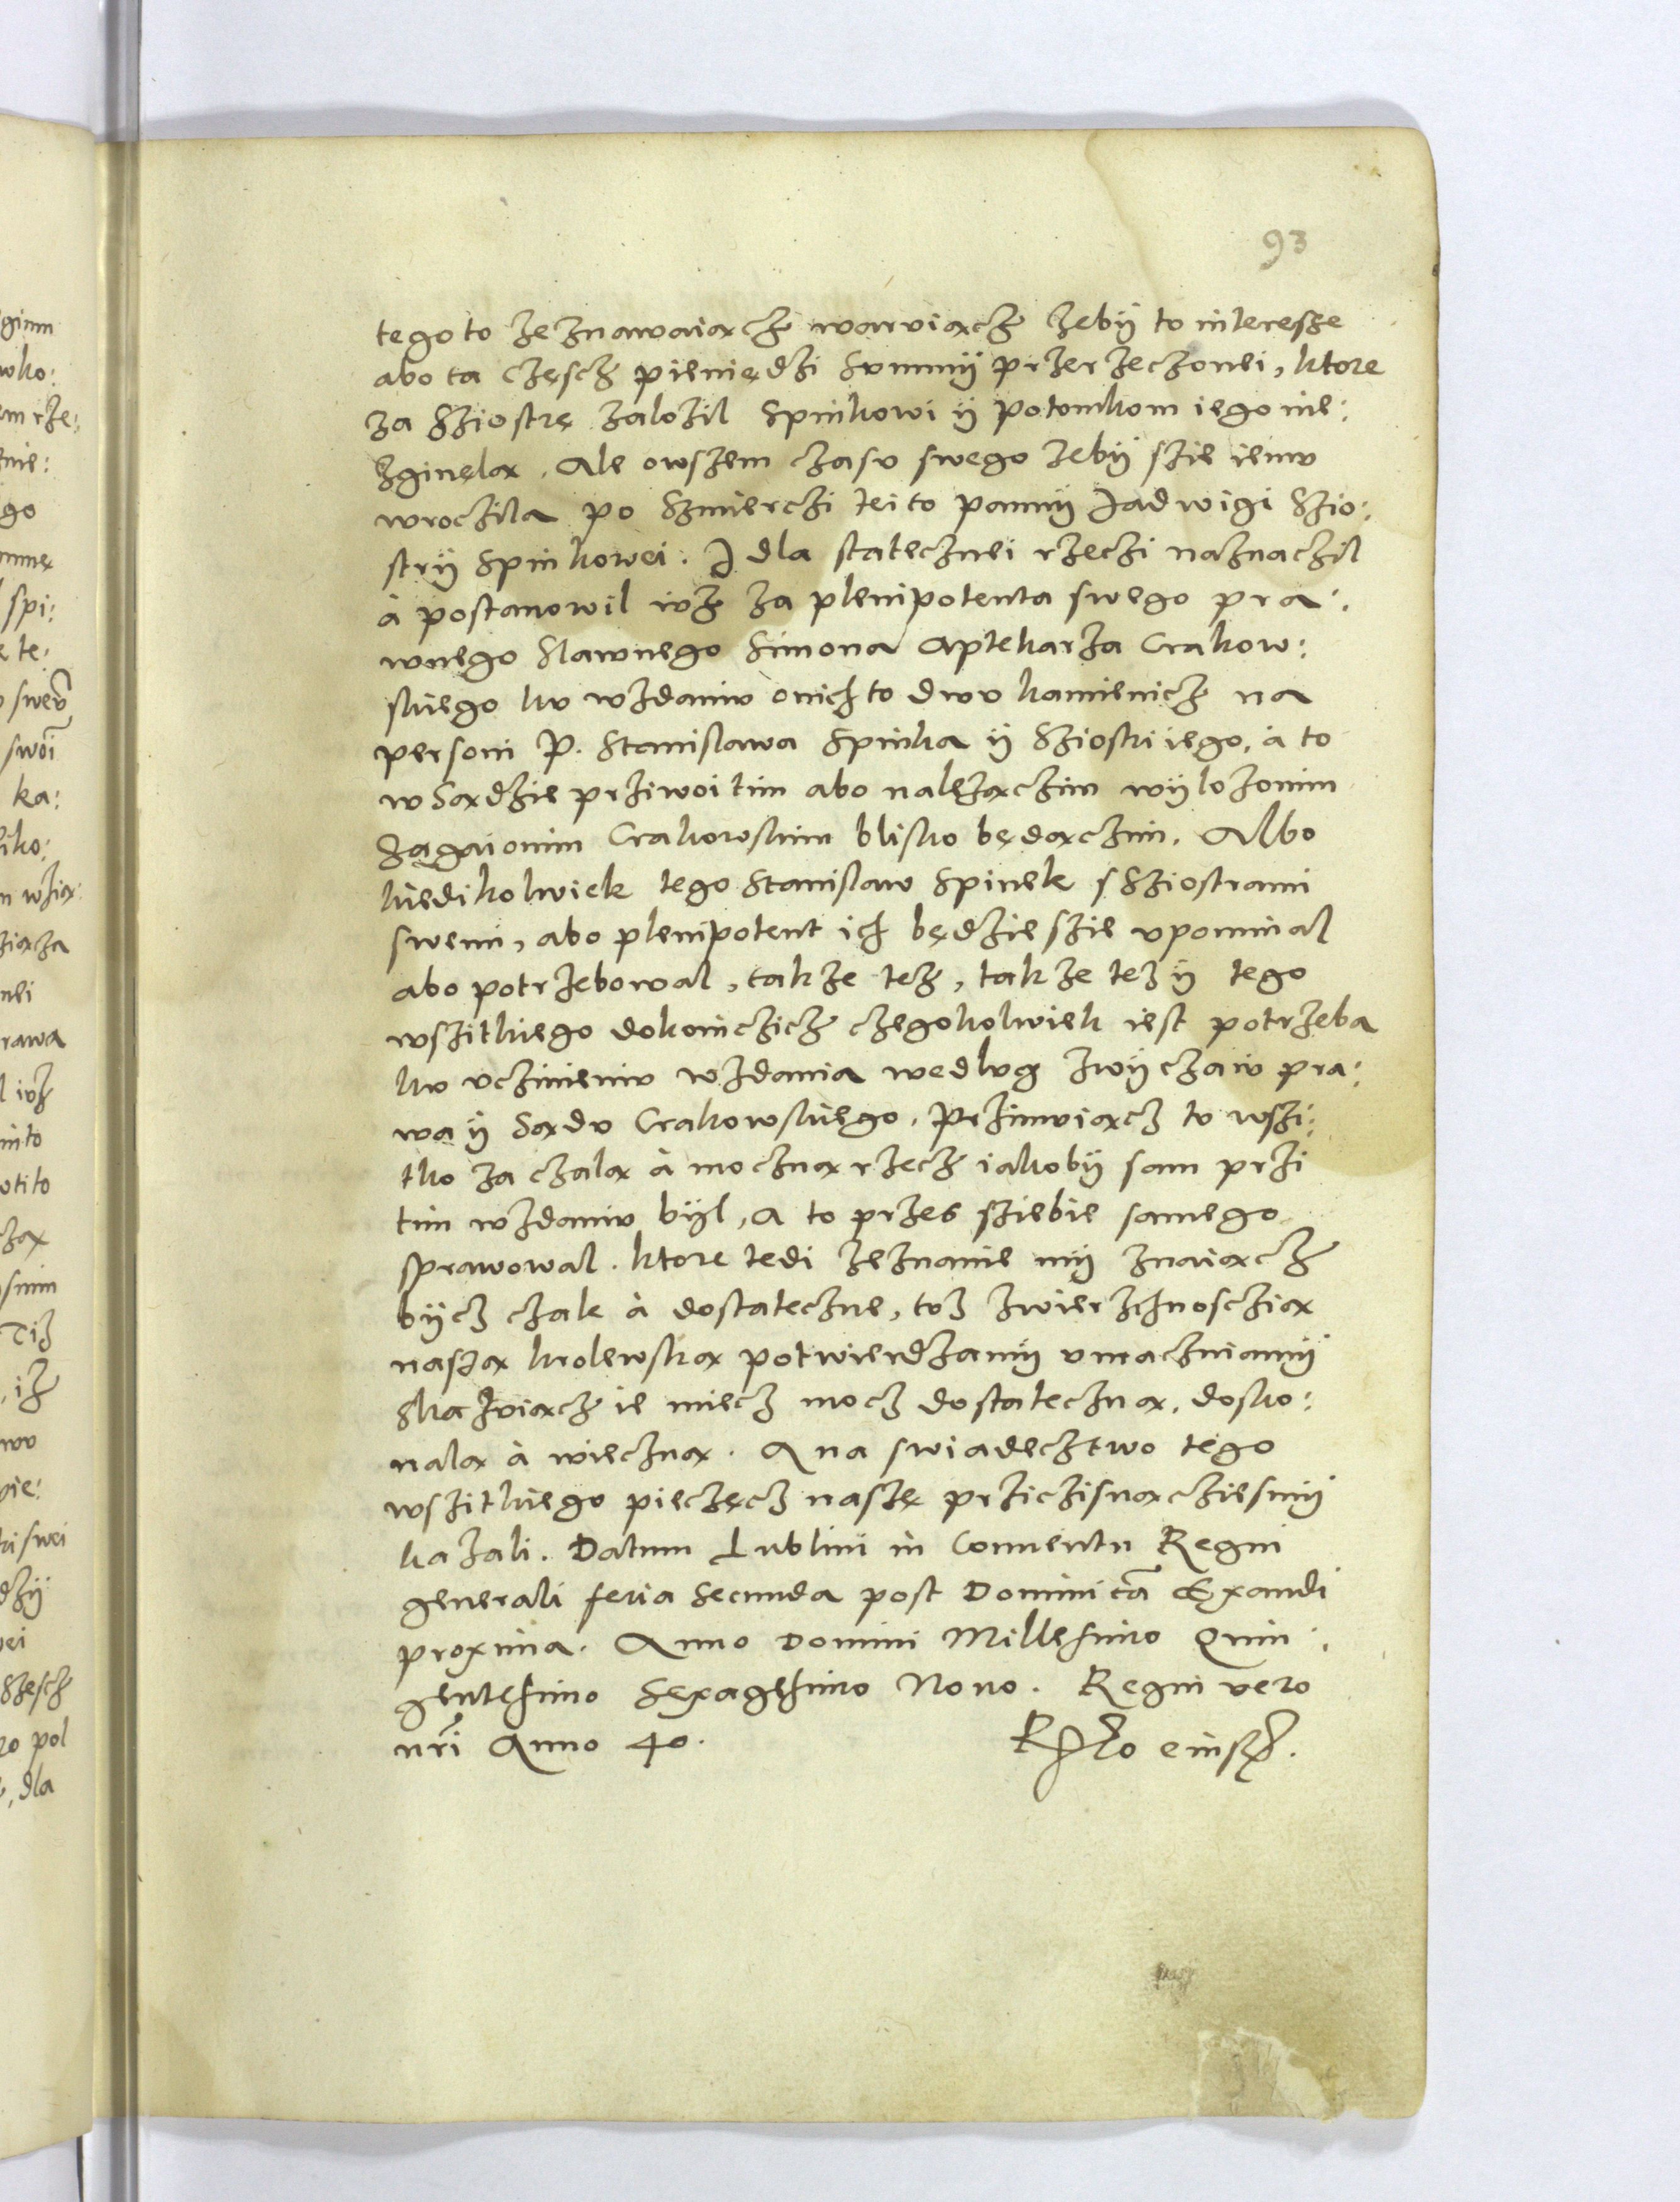 93
tego to zeznawaiącz waruiącz zebÿ to interesze
abo ta częscz pieniędzi summÿ przerzeczonei, ktore
za Sziostrę zalozil Spinkowi ÿ potomkom iego nie:
zginęla. Ale owszem czasu swego zebÿ szie iemu
wroczila po Szmierczi tei to pannÿ Jadwigi Szio:
strÿ Spinkowei. J dla statecznei rzeczi naznaczil
à postanowil iuz za plenipotenta swego pra:
wnego Slawnego Simona Aptekarza Crakow:
skiego ku wzdaniu onich to dwu kamienicz na
personi P. Stanislawa Spinka ÿ Sziostri iego, à to
w Sądzie prziwoitim abo nalezączim wÿlozonim
zagaionim Crakowskim blisko będączim. Albo
kiedikolwiek tego Stanislaw Spinek s Sziostrami
swemi, abo plenipotent ich będzie szie upominal
abo potrzebowal, takze tez, takze tez ÿ tego
wszitkiego dokonczicz czegokolwiek iest potrzeba
ku uczinieniu wzdania wedlug zwÿczaiu pra:
wa ÿ Sądu Crakowskiego. Prziimuiącz to wszi:
tko za czalą à moczną rzecz iakobÿ sam przi
tim wzdaniu bÿl, a to przes sziebie samego
sprawowal. ktore tedi zeznanie mÿ znaiącz
bÿcz czale à dostateczne, toz zwierzchnoscią
naszą krolewską potwierdzamÿ umaczniamÿ
skazuiącz ie miecz mocz dostateczną, dosko:
nalą à wieczną. A na swiadecztwo tego
wszitkiego pieczęcz naszę prziczisnącziesmÿ
kazali. Datum Lublini in Conuentu Regni
generali feria Secunda post Dominicã Exaudi
proxima. Anno Domini Millesimo Quin:
gentesimo Sexagesimo Nono. Regni vero
nr̃i Anno 40.